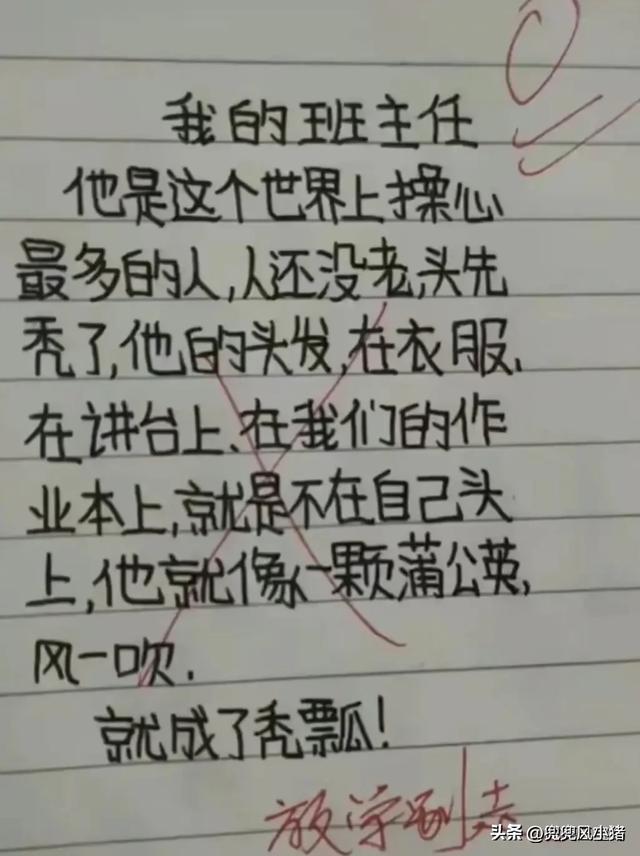 0
我的班主任
他是这个世界上操心
最多的人,人还没老,头先
秃了,他的头发,在衣服、
在讲台上、在我们的作
业本上,就是不在自己头
上,他就像一颗蒲公英,
风一吹.
就成了秃瓢!
放学别走
头条 @兜兜风小猪